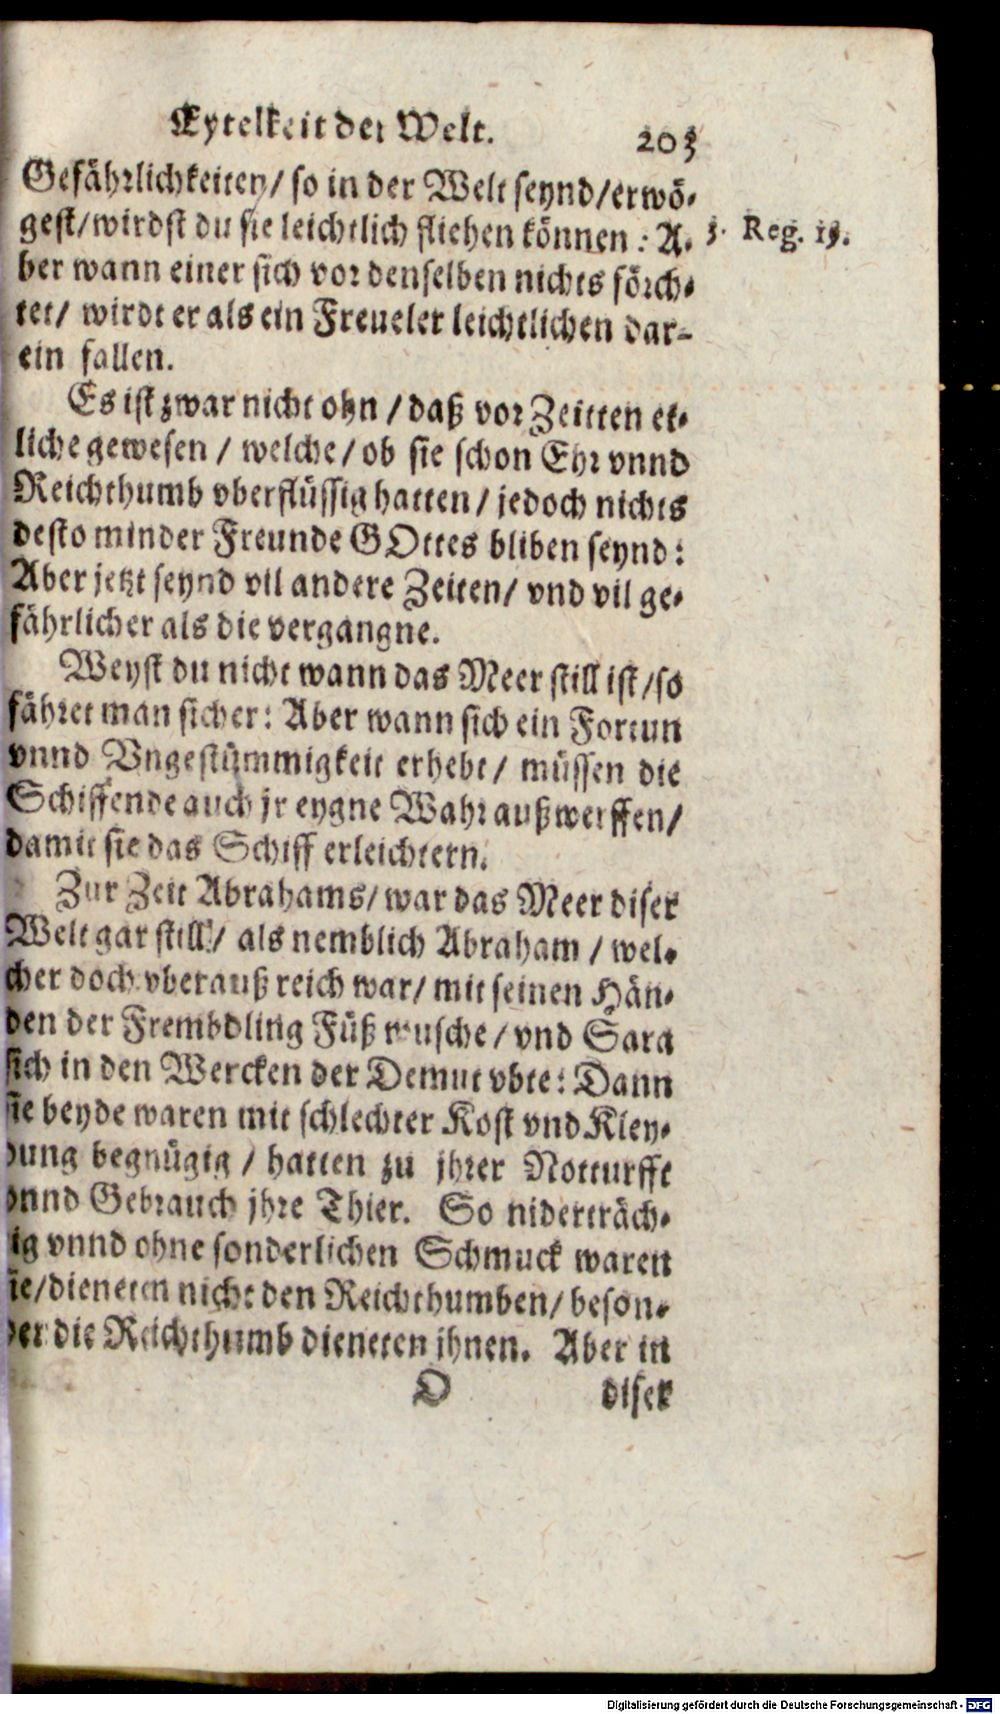 Eytelkeit der Welt. 203
Gefährlichkeiten/ so in der Welt seynd/erwö-
gest/wirdst du sie leichtlich fliehen können: A-
3. Reg. 19.
ber wann einer sich vor denselben nichts förch-
tet/ wirdt er als ein Freueler leichtlichen dar-
ein fallen.
Es ist zwar nicht ohn / daß vor Zeitten et-
liche gewesen / welche / ob sie schon Ehr vnnd
Reichthumb vberflüssig hatten / jedoch nichts
desto minder Freunde GOttes bliben seynd:
Aber jetzt seynd vil andere Zeiten/ vnd vil ge-
fährlicher als die vergangne.
Weyst du nicht wann das Meer still ist/so
fähret man sicher: Aber wann sich ein Fortun
vnnd Vngestümmigkeit erhebt/ müssen die
Schiffende auch jr eygne Wahr außwerffen/
damit sie das Schiff erleichtern.
Zur Zeit Abrahams/ war das Meer diser
Welt gar still/ als nemblich Abraham / wel-
cher doch vberauß reich war/ mit seinen Hän-
den der Frembdling Füß wusche/ vnd Sara
sich in den Wercken der Demut vbte: Dann
sie beyde waren mit schlechter Kost vnd Kley-
dung begnügig / hatten zu jhrer Notturfft
vnnd Gebrauch jhre Thier. So niderträch-
ig vnnd ohne sonderlichen Schmuck waren
sie/dieneten nicht den Reichthumben/ beson-
der die Reichthumb dieneten jhnen. Aber in
O diser
Digitalisierung gefördert durch die Deutsche Forschungsgemeinschaft - DFG